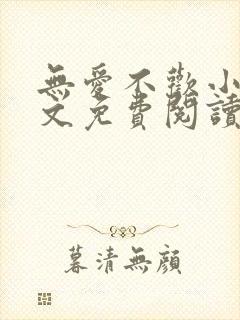 無愛不歡小
文免費閱讀
暮清無顏